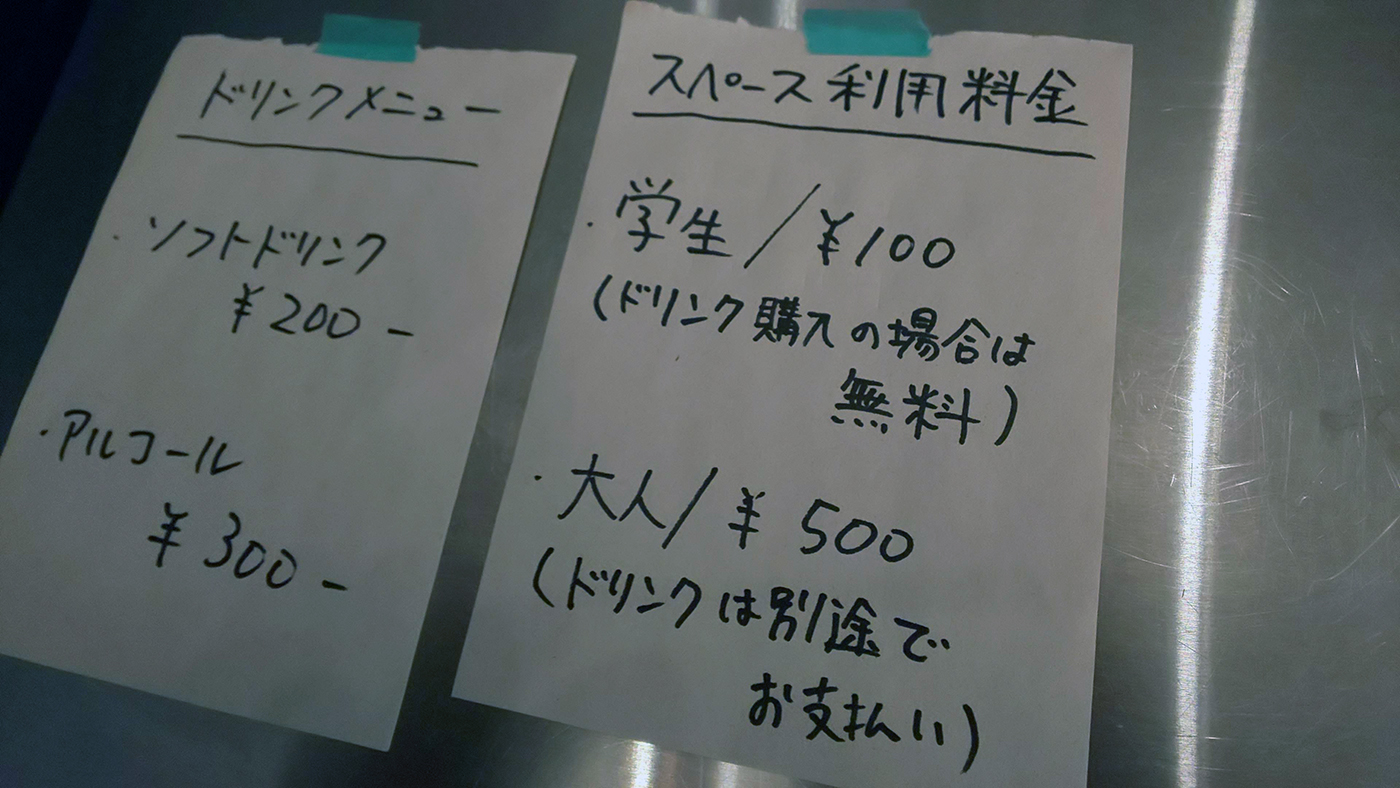 ドリンクメニュー
・ソフトドリンク
¥200-
・アルコール
¥300-
スペース利用料金
・学生/¥100
(ドリンク購入の場合は
無料)
・大人/¥500
(ドリンクは別途で
お支払い)